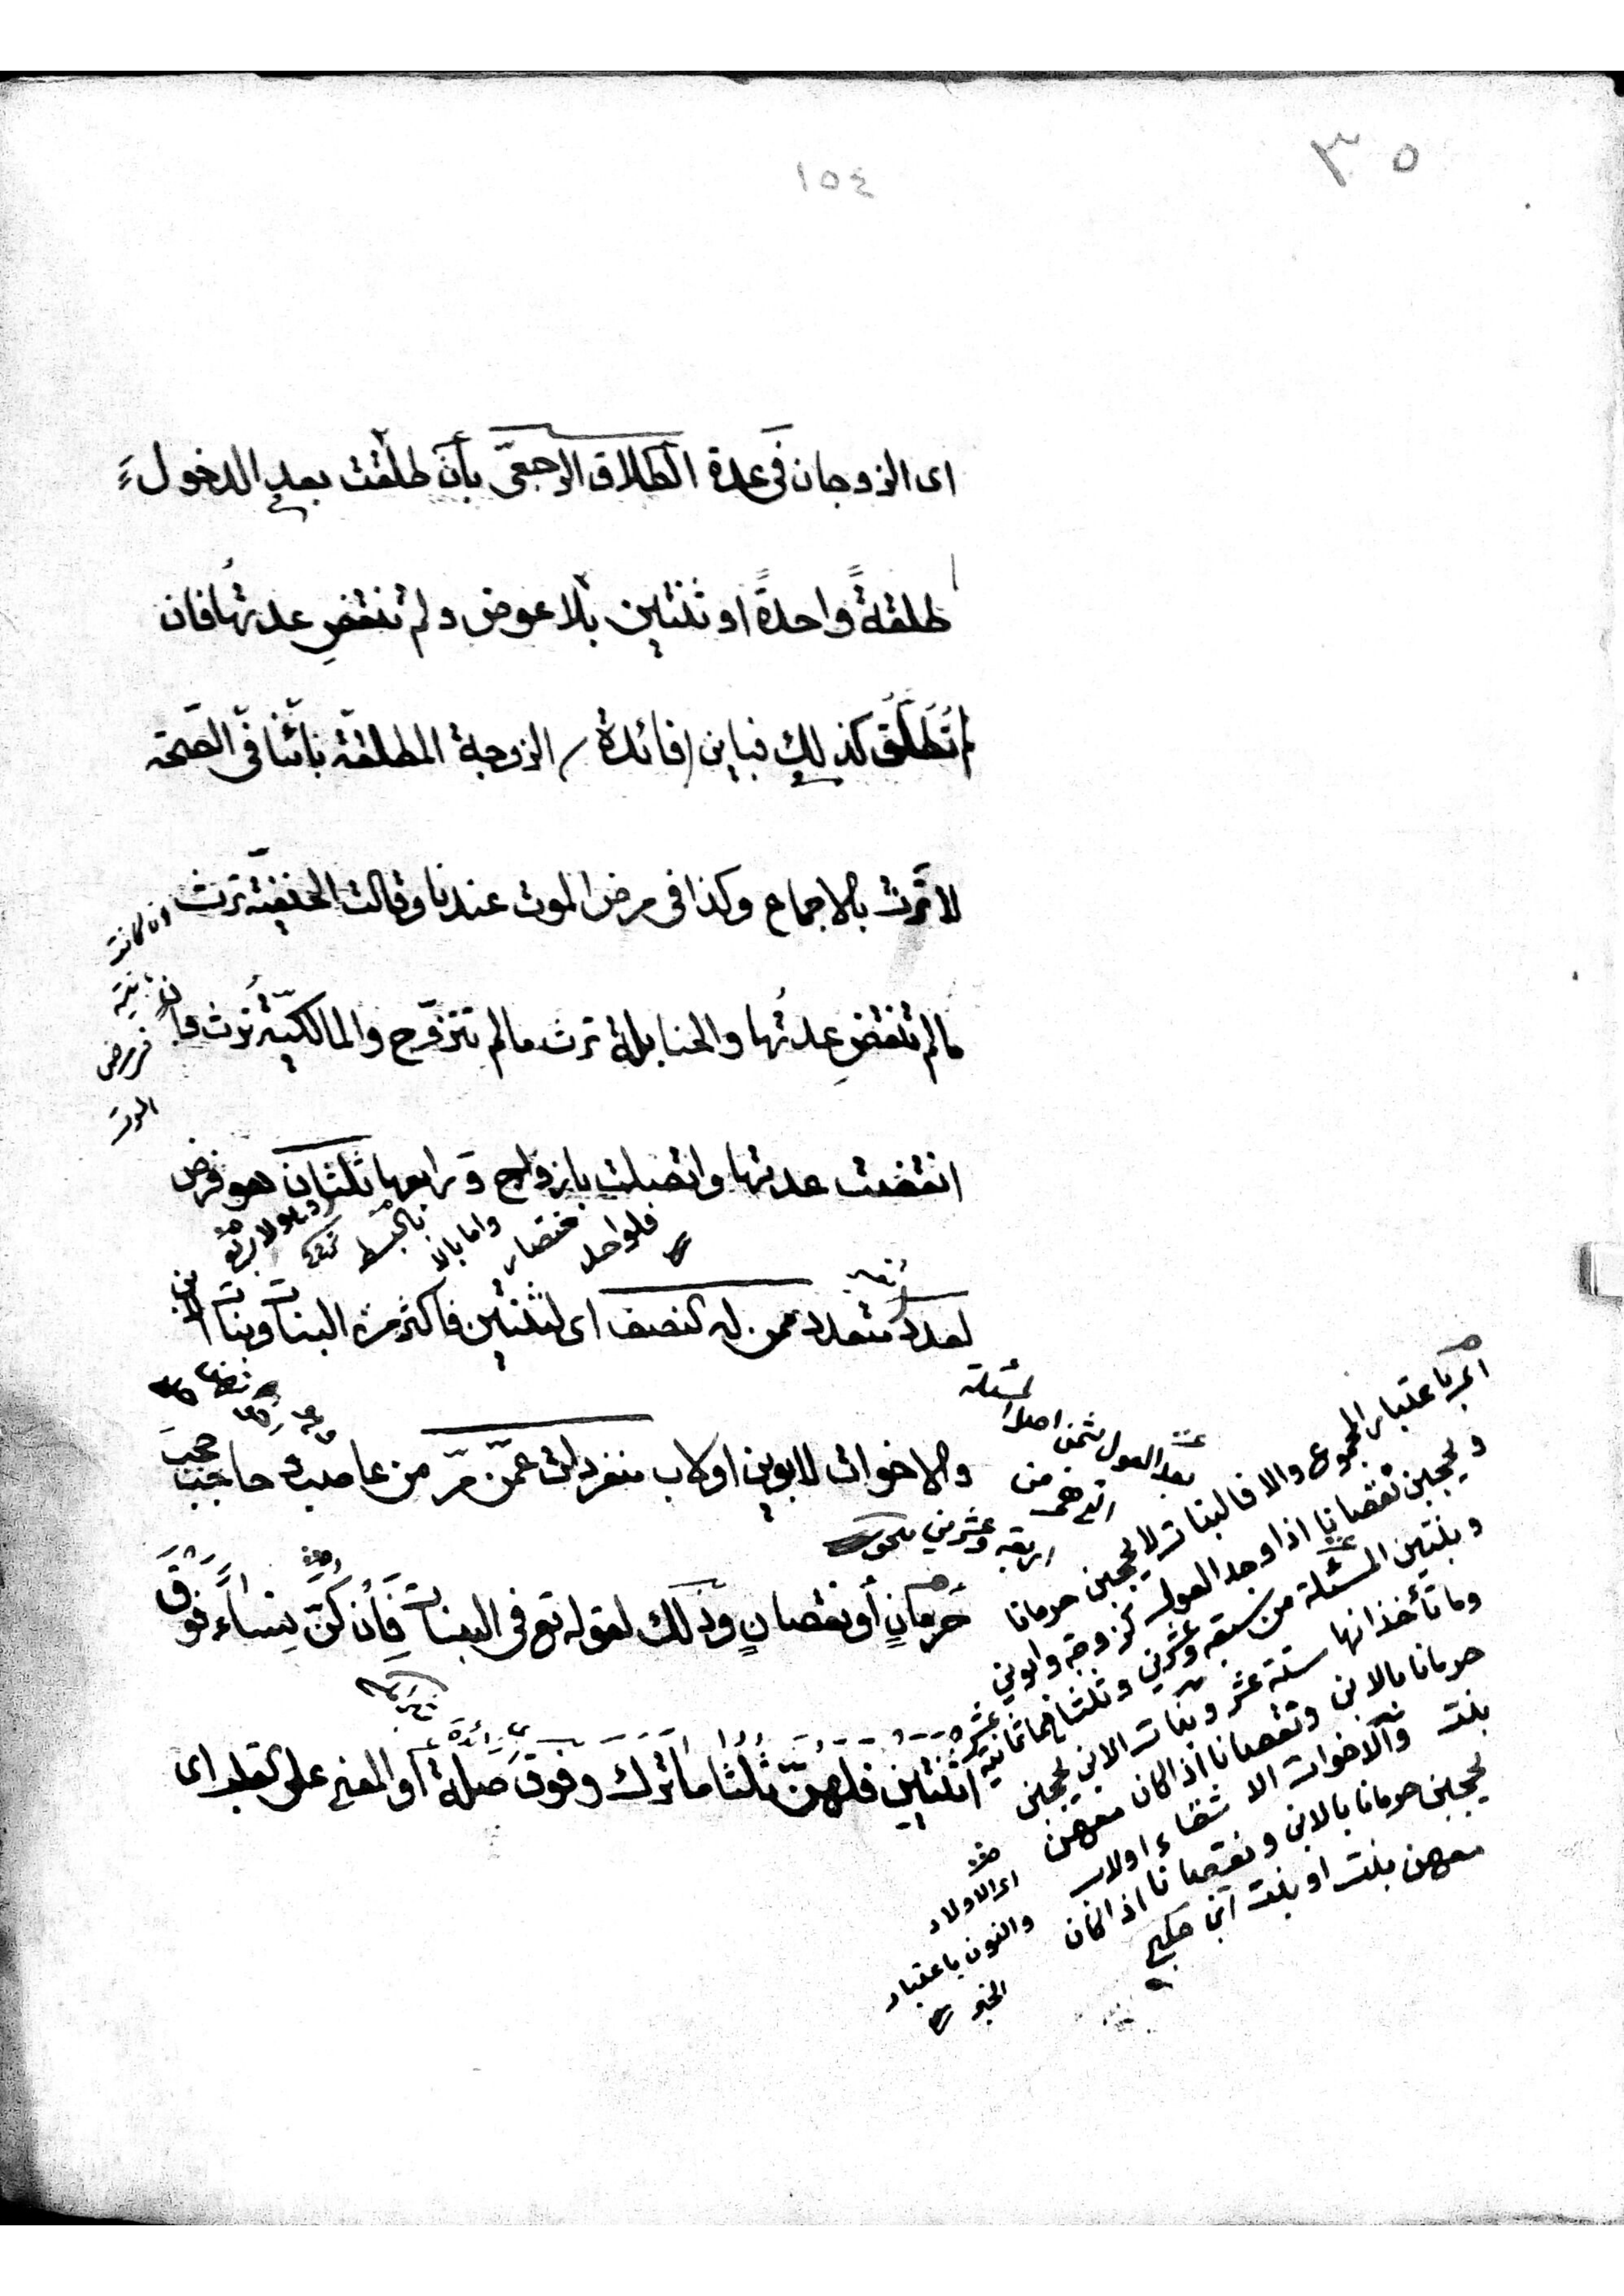 ٣٥
١٥٤
اى الزوجان فى عدة الطلاق الرجعىّ بأن طلّقت بعد الدخول
طلقةً واحدةً او ثنتين بلا عوض ولم تنقضِ عدتُها فان
لم تُطَلَّق كذلك فباين (فائدة) الزوجة المطلقة بائنا فى الصّحة
لا تَرث بالاجماع وكذا فى مرض الموت عندنا وقالت الحنفيّة ترث
ان كانت
فى مرض
الموت
مالم تنقضِ عدتُها والحنابلة ترث مالم تتزوّج والمالكيّة تُرث وان
انقضت عدتها واتصلت بازواج و رابعها ثلثان هو فرض
فلواحد
واما بالا
لعدد متعدد ممن له النصف اى لثنتين فاكثر من البنات وبنات الابن
والاخوات لابوين او لاب منفردات عمّن مرّ من عاصب و حاجب حجبَ
حَرمانٍ أو نقصانٍ وذلك لقوله تع فى البنات فَاِنْ كُنَّ نِسَاءً فَوْقَ
اثْنَتَينِ فلهنّ ثُلُثا ما تَرَكَ وفوقَ صلة او المعنى على التقليد اى
المسئلة
بعد العول ثمن اصل
اربعة وعشرين
اى باعتبار المجموع والا فالبنات لا يحجبن حرمانا
ويحجبن نقصانا اذا وجد العول كزوجة وابوين
وبنتين المسئلة من سبعة وعشرين وثلثاهما ثمانية عشر
وما تأخذانها ستة عشر وبنات الابن يحجبن
حرمانا بالابن ونقصانا اذا كان معهن
بنت والاخوات الاشقاء اولاب
يحجبن حرمانا بالابن ونقصانا اذا كان
معهن بنت او بنت ابن
اى الاولاد
والنون باعتبار
الخبر